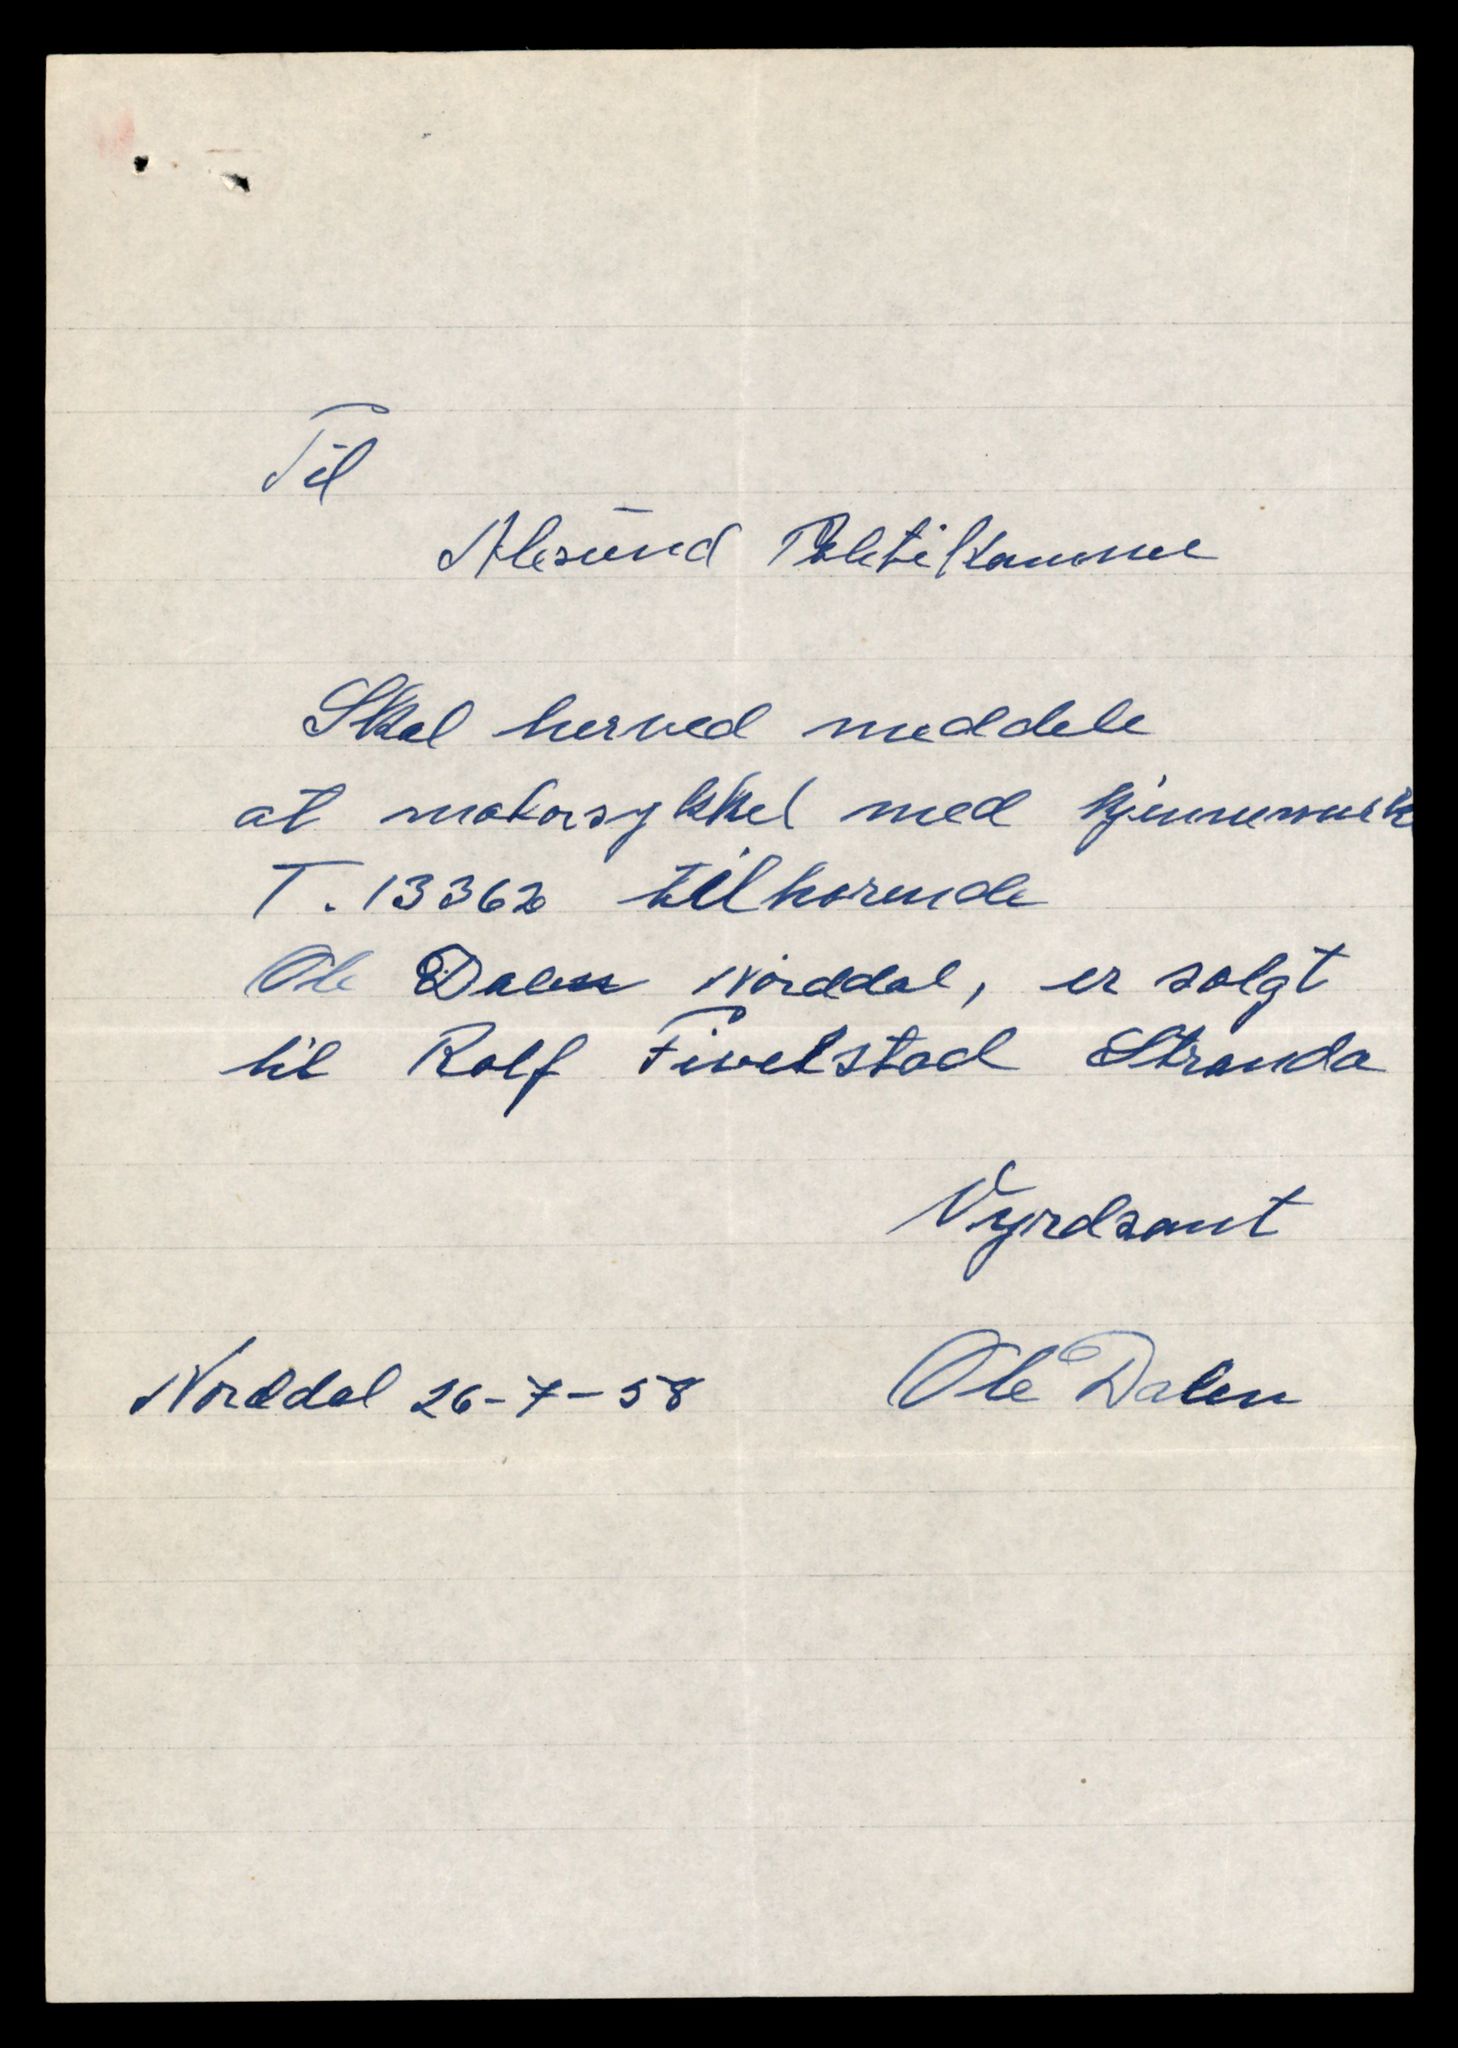 Til
Alesund Politikammer
Skal herved meddele
at motorsykkel med kjennemerk
T. 13362 tilhorende
Ole Dalen Norddal, er solgt
til Rolf Fivelstad Stranda
Vyrdsamt
Norddal 26-7-58 Ole Dalen